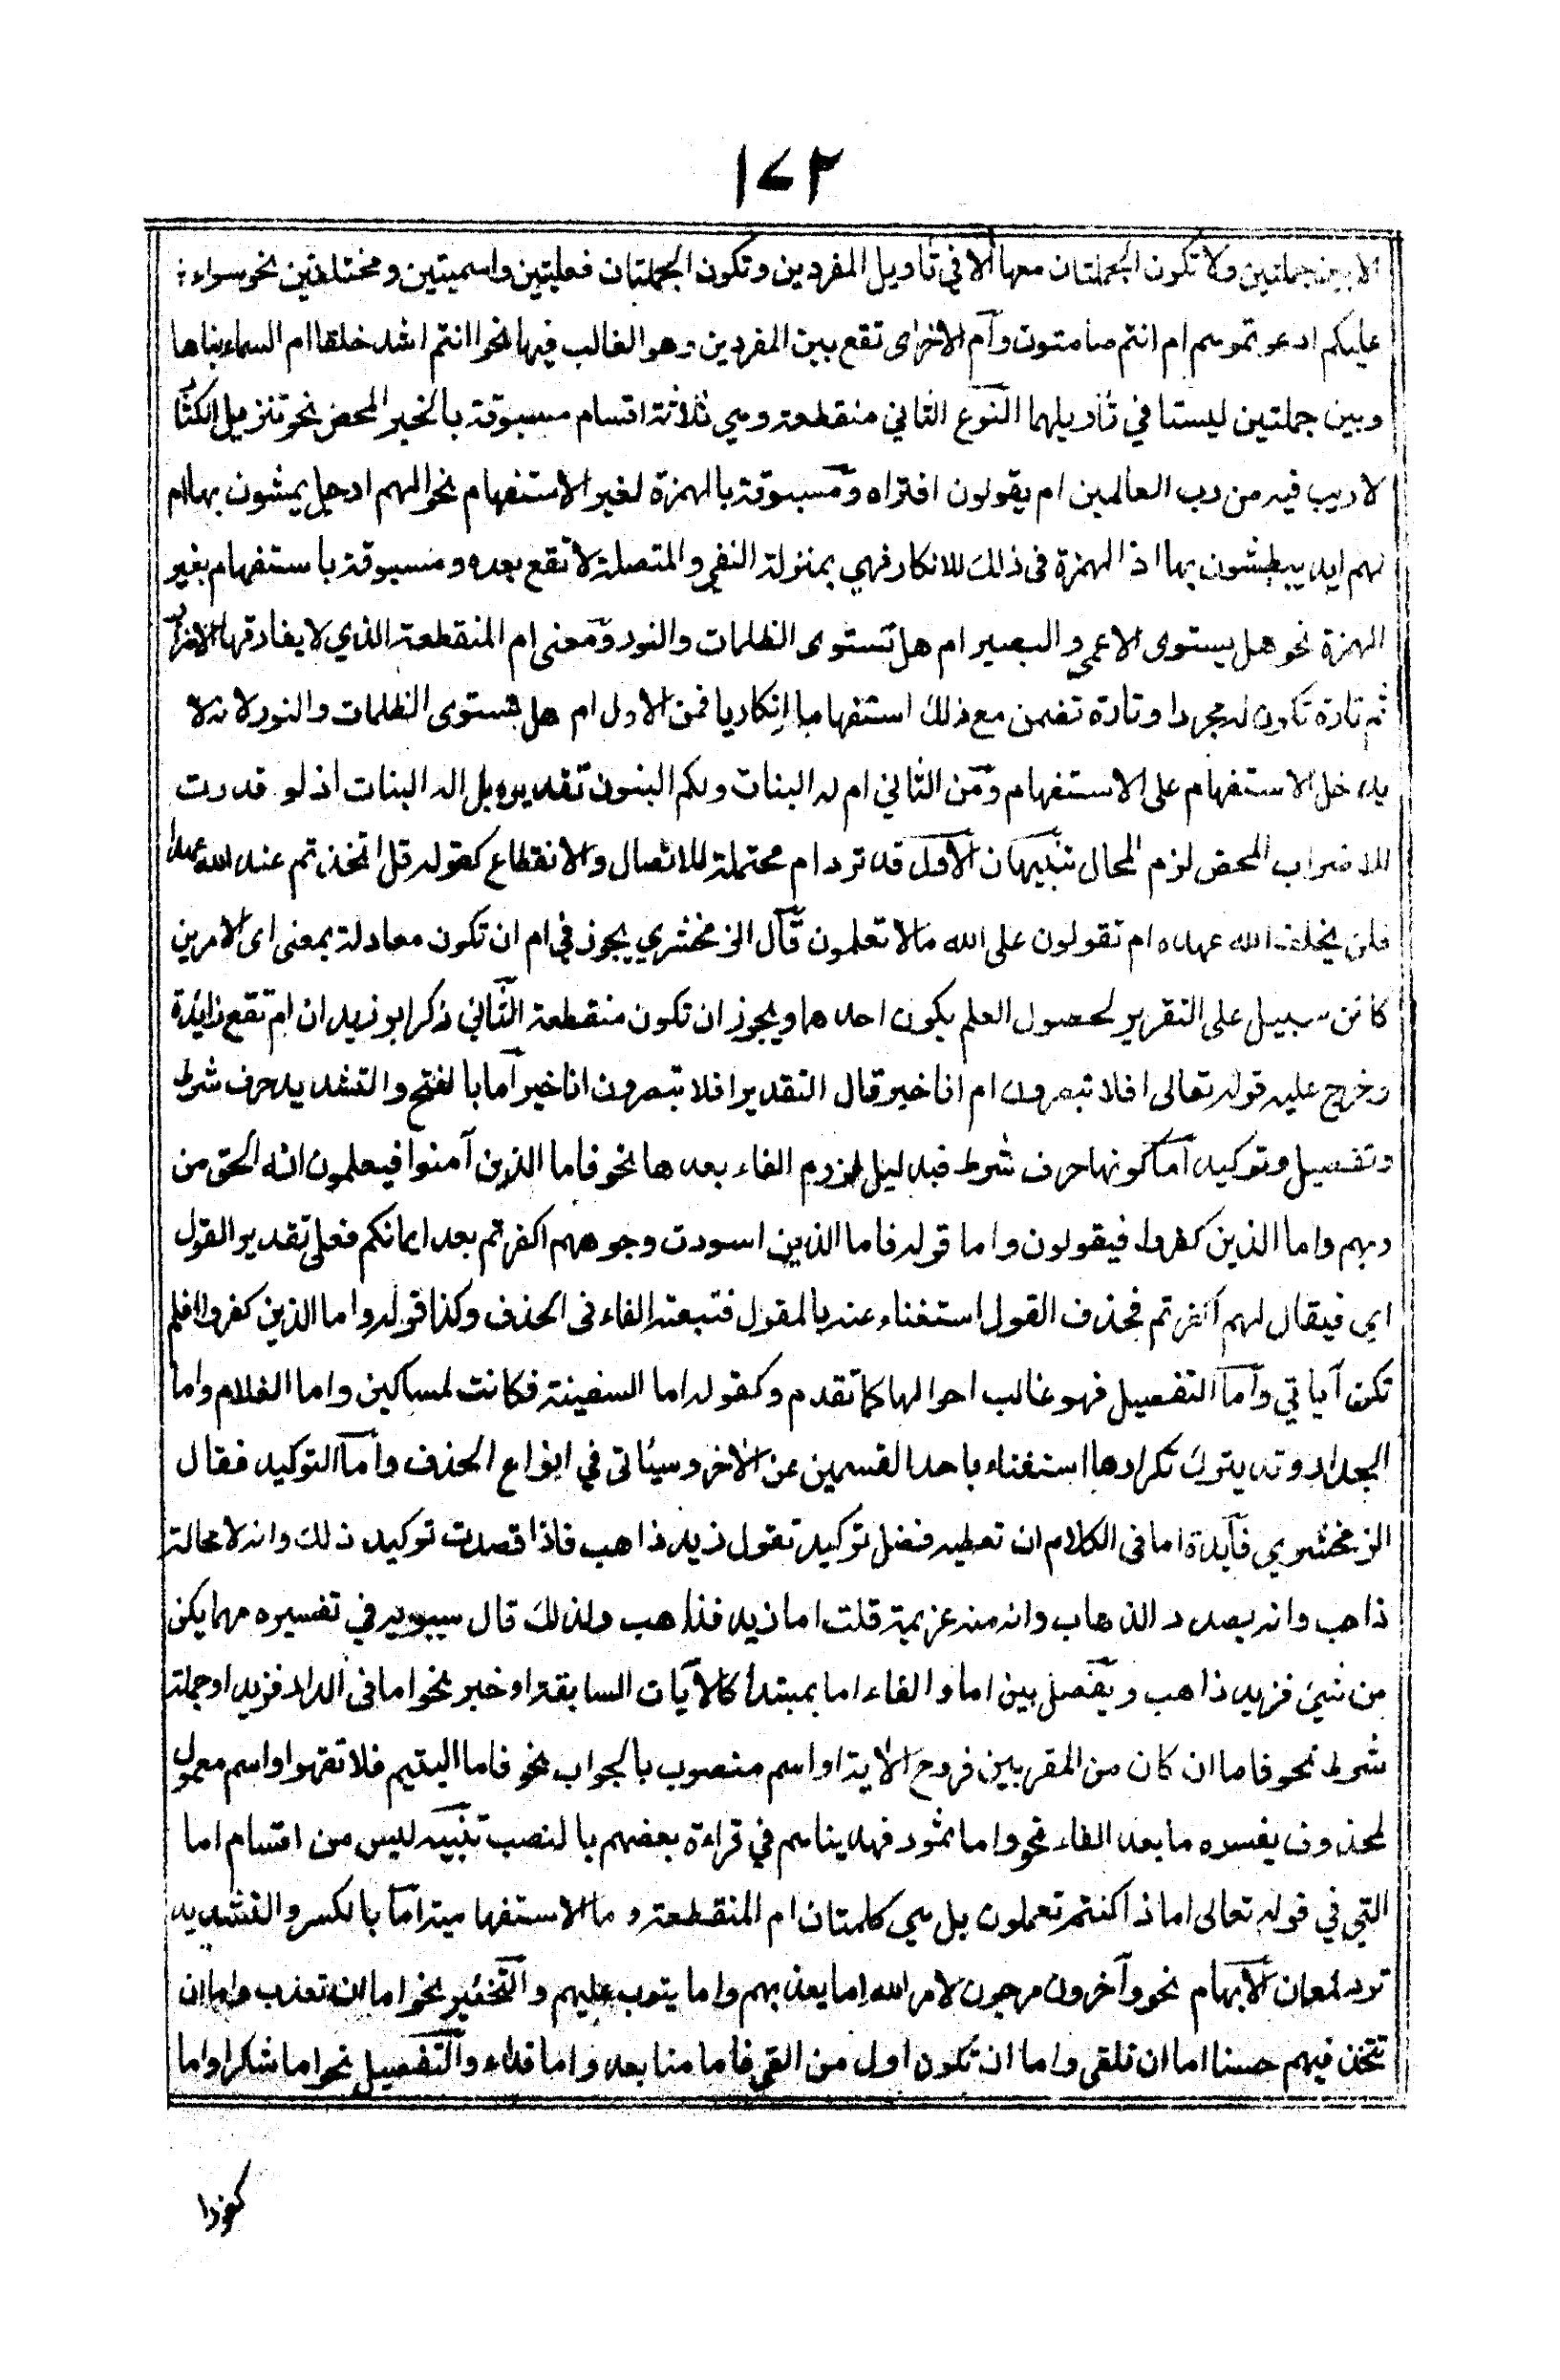 ١٧٢
الا بين جملتين ولا تكون الجملتان معها الا في تأويل المفردين وتكون الجملتان فعليتين واسميتين ومختلفتين نحو سواء
عليكم ادعوتموهم ام انتم صامتون وأم الاخرى تقع بين المفردين وهو الغالب فيها نحو اانتم اشد خلقا ام السماء بناها
وبين جملتين ليستا في تأويلهما النوع الثاني منقطعة وهي ثلاثة اقسام مسبوقة بالخبر المحض نحو تنزيل الكتاب
لا ريب فيه من رب العالمين ام يقولون افتراه ومسبوقة بالهمزة لغير الاستفهام نحو الهم ارجل يمشون بها ام
لهم ايد يبطشون بها اذ الهمزة فى ذلك للانكار فهي بمنزلة النفي والمتصلة لا تقع بعده ومسبوقة باستفهام بغير
الهمزة نحو هل يستوى الاعمي والبصير ام هل تستوى الظلمات والنور ومعنى ام المنقطعة الذي لا يفارقها الاضراب
ثم تارة تكون له مجردا وتارة تضمن مع ذلك استفهاما انكاريا فمن الاول ام هل يستوى الظلمات والنور لانه لا
يدخل الاستفهام على الاستفهام ومن الثاني ام له البنات ولكم البنون تقديره بل اله البنات اذ لو قدرت
للاضراب المحض لزم المحال تنبيهان الاول قد ترد ام محتملة للاتصال والانقطاع كقوله قل اتخذتم عند الله عهدا
فلن يخلف الله عهده ام تقولون على الله مالا تعلمون قال الزمخشري يجوز في ام ان تكون معادلة بمعنى اى الامرين
كائن سبيل على التقرير لحصول العلم بكون احدهما ويجوز ان تكون منقطعة الثاني ذكر ابو زيد ان ام تقع زائدة
وخرج عليه قوله تعالى افلا تبصرون ام انا خير قال التقدير افلا تبصرون انا خير أما بالفتح والتشديد حرف شرط
وتفصيل وتوكيد أما كونها حرف شرط فبدليل لزوم الفاء بعدها نحو فاما الذين آمنوا فيعلمون انه الحق من
ربهم واما الذين كفروا فيقولون واما قوله فاما الذين اسودت وجوههم اكفرتم بعد ايمانكم فعلى تقدير القول
اي فيقال لهم اكفرتم فحذف القول استغناء عنه بالمقول فتبعته الفاء فى الحذف وكذا قوله واما الذين كفروا افلم
تكن آياتي وأما التفصيل فهو غالب احوالها كما تقدم وكقوله اما السفينة فكانت لمساكين واما الغلام واما
الجدار وقد يترك تكرارها استغناء باحد القسمين عن الآخر وسيئاتى في انواع الحذف وأما التوكيد فقال
الزمخشري فآيدة اما فى الكلام ان تعطيه فضل توكيد تقول زيد ذاهب فاذا قصدت توكيد ذلك وانه لا محالة
ذاهب وانه بصدد الذهاب وانه منه عزيمة قلت اما زيد فذاهب ولذلك قال سيبويه في تفسيره مهما يكن
من شيئ فزيد ذاهب ويفصل بين اما والفاء اما بمبتدأ كالآيات السابقة او خبر نحو اما فى الدار فزيد او جملة
شرط نحو فاما ان كان من المقربين فروح الآية او اسم منصوب بالجواب نحو فاما اليتيم فلا تقهر او اسم معمول
لمحذوف يفسره ما بعد الفاء نحو واما ثمود فهديناهم في قراءة بعضهم بالنصب تنبيه ليس من اقسام اما
التي في قوله تعالى اماذا كنتم تعملون بل هي كلمتان ام المنقطعة وما الاستفهامية إما بالكسر والتشديد
ترد لمعان الابهام نحو وآخرون مرجون لامر الله اما يعذبهم واما يتوب عليهم والتخئير نحو اما ان تعذب واما ان
تتخذ فيهم حسنا اما ان تلقى واما ان تكون اول من القى فاما منا بعد واما فداء والتفصيل نحو اما شاكرا واما
كفورا